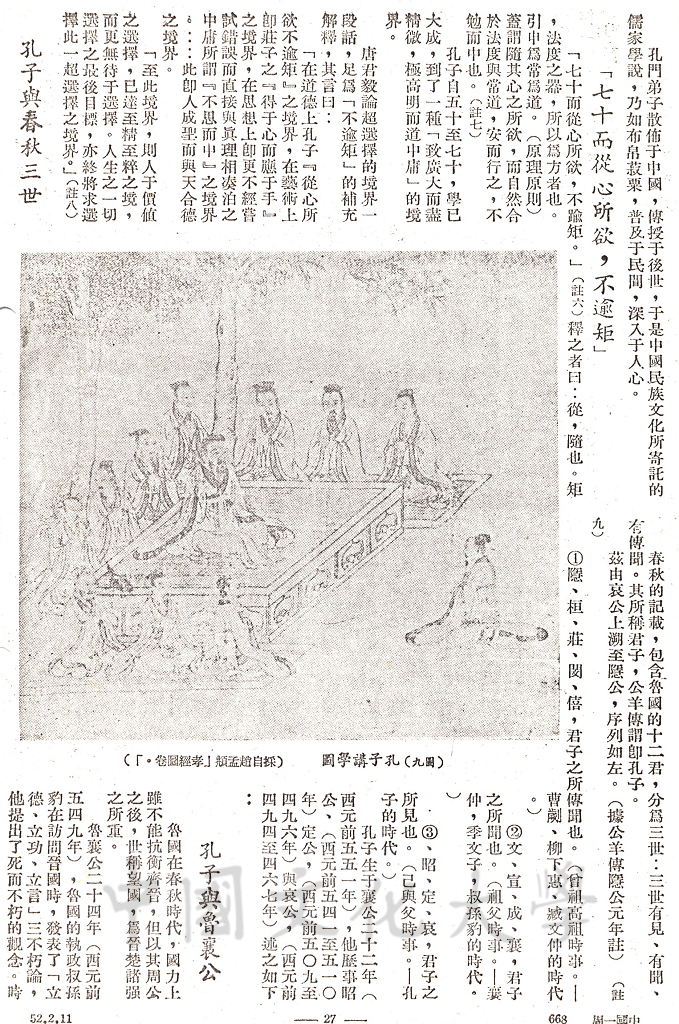 孔門弟子散佈于中國，傳授于後世，于是中國民族文化所寄託的
儒家學說，乃如布帛菽粟，普及于民間，深入于人心。
「七十而從心所欲，不逾矩」
「七十而從心所欲，不踰矩。」（註六）釋之者曰：從，隨也。矩
，法度之器，所以為方者也。
引申為常為道。（原理原則）
蓋謂隨其心之所欲，而自然合
於法度與常道，安而行之，不
勉而中也。（註七）
孔子自五十至七十，學已
大成，到了一種「致廣大而盡
精微，極高明而道中庸」的境
界。
唐君毅論超選擇的境界一
段話，足為「不逾矩」的補充
解釋，其言曰：
「在道德上孔子『從心所
欲不逾矩』之境界，在藝術上
卽莊子之『得于心而應于手』
之境界，在思想上卽更不經嘗
試錯誤而直接與眞理相湊泊之
中庸所謂『不思而中』之境界
。……此卽人成聖而與天合德
之境界。
「至此境界，則人于價值
之選擇，已達至精至粹之境，
而更無待于選擇。人生之一切
選擇之最後目標，亦終將求選
擇此一超選擇之境界。」（註八）
孔子與春秋三世
春秋的記載，包含魯國的十二君，分為三世：三世有見、有聞、
有傳聞。其所稱君子，公羊傳謂卽孔子。
茲由哀公上溯至隱公，序列如左。（據公羊傳隱公元年註）（註
九）
①隱、桓、莊、閔、僖，君子之所傳聞也。（曾祖高祖時事。—
曹劌、柳下惠、臧文仲的時代
。）
②文、宣、成、襄，君子
之所聞也。（祖父時事。—襄
仲，季文子，叔孫豹的時代。
）
③、昭、定、哀，君子之
所見也。（己與父時事。—孔
子的時代。）
孔子生于襄公二十二年（
西元前五五一年），他歷事昭
公、（西元前五四一至五一〇
年）定公，（西元前五〇九至
四九六年）與哀公，（西元前
四九四至四六七年）述之如下
：
孔子與魯襄公
魯國在春秋時代，國力上
雖不能抗衡齊晉，但以其周公
之後，世稱望國，為晉楚諸强
之所重。
魯襄公二十四年（西元前
五四九年），魯國的執政叔孫
豹在訪問晉國時，發表了「立
德、立功、立言」三不朽論，
他提出了死而不朽的觀念。時
（圖九）孔子講學圖
（採自趙孟頫「孝經圖卷。」）
中國文化大學
52,2,11
— 27 —
668
中國一周